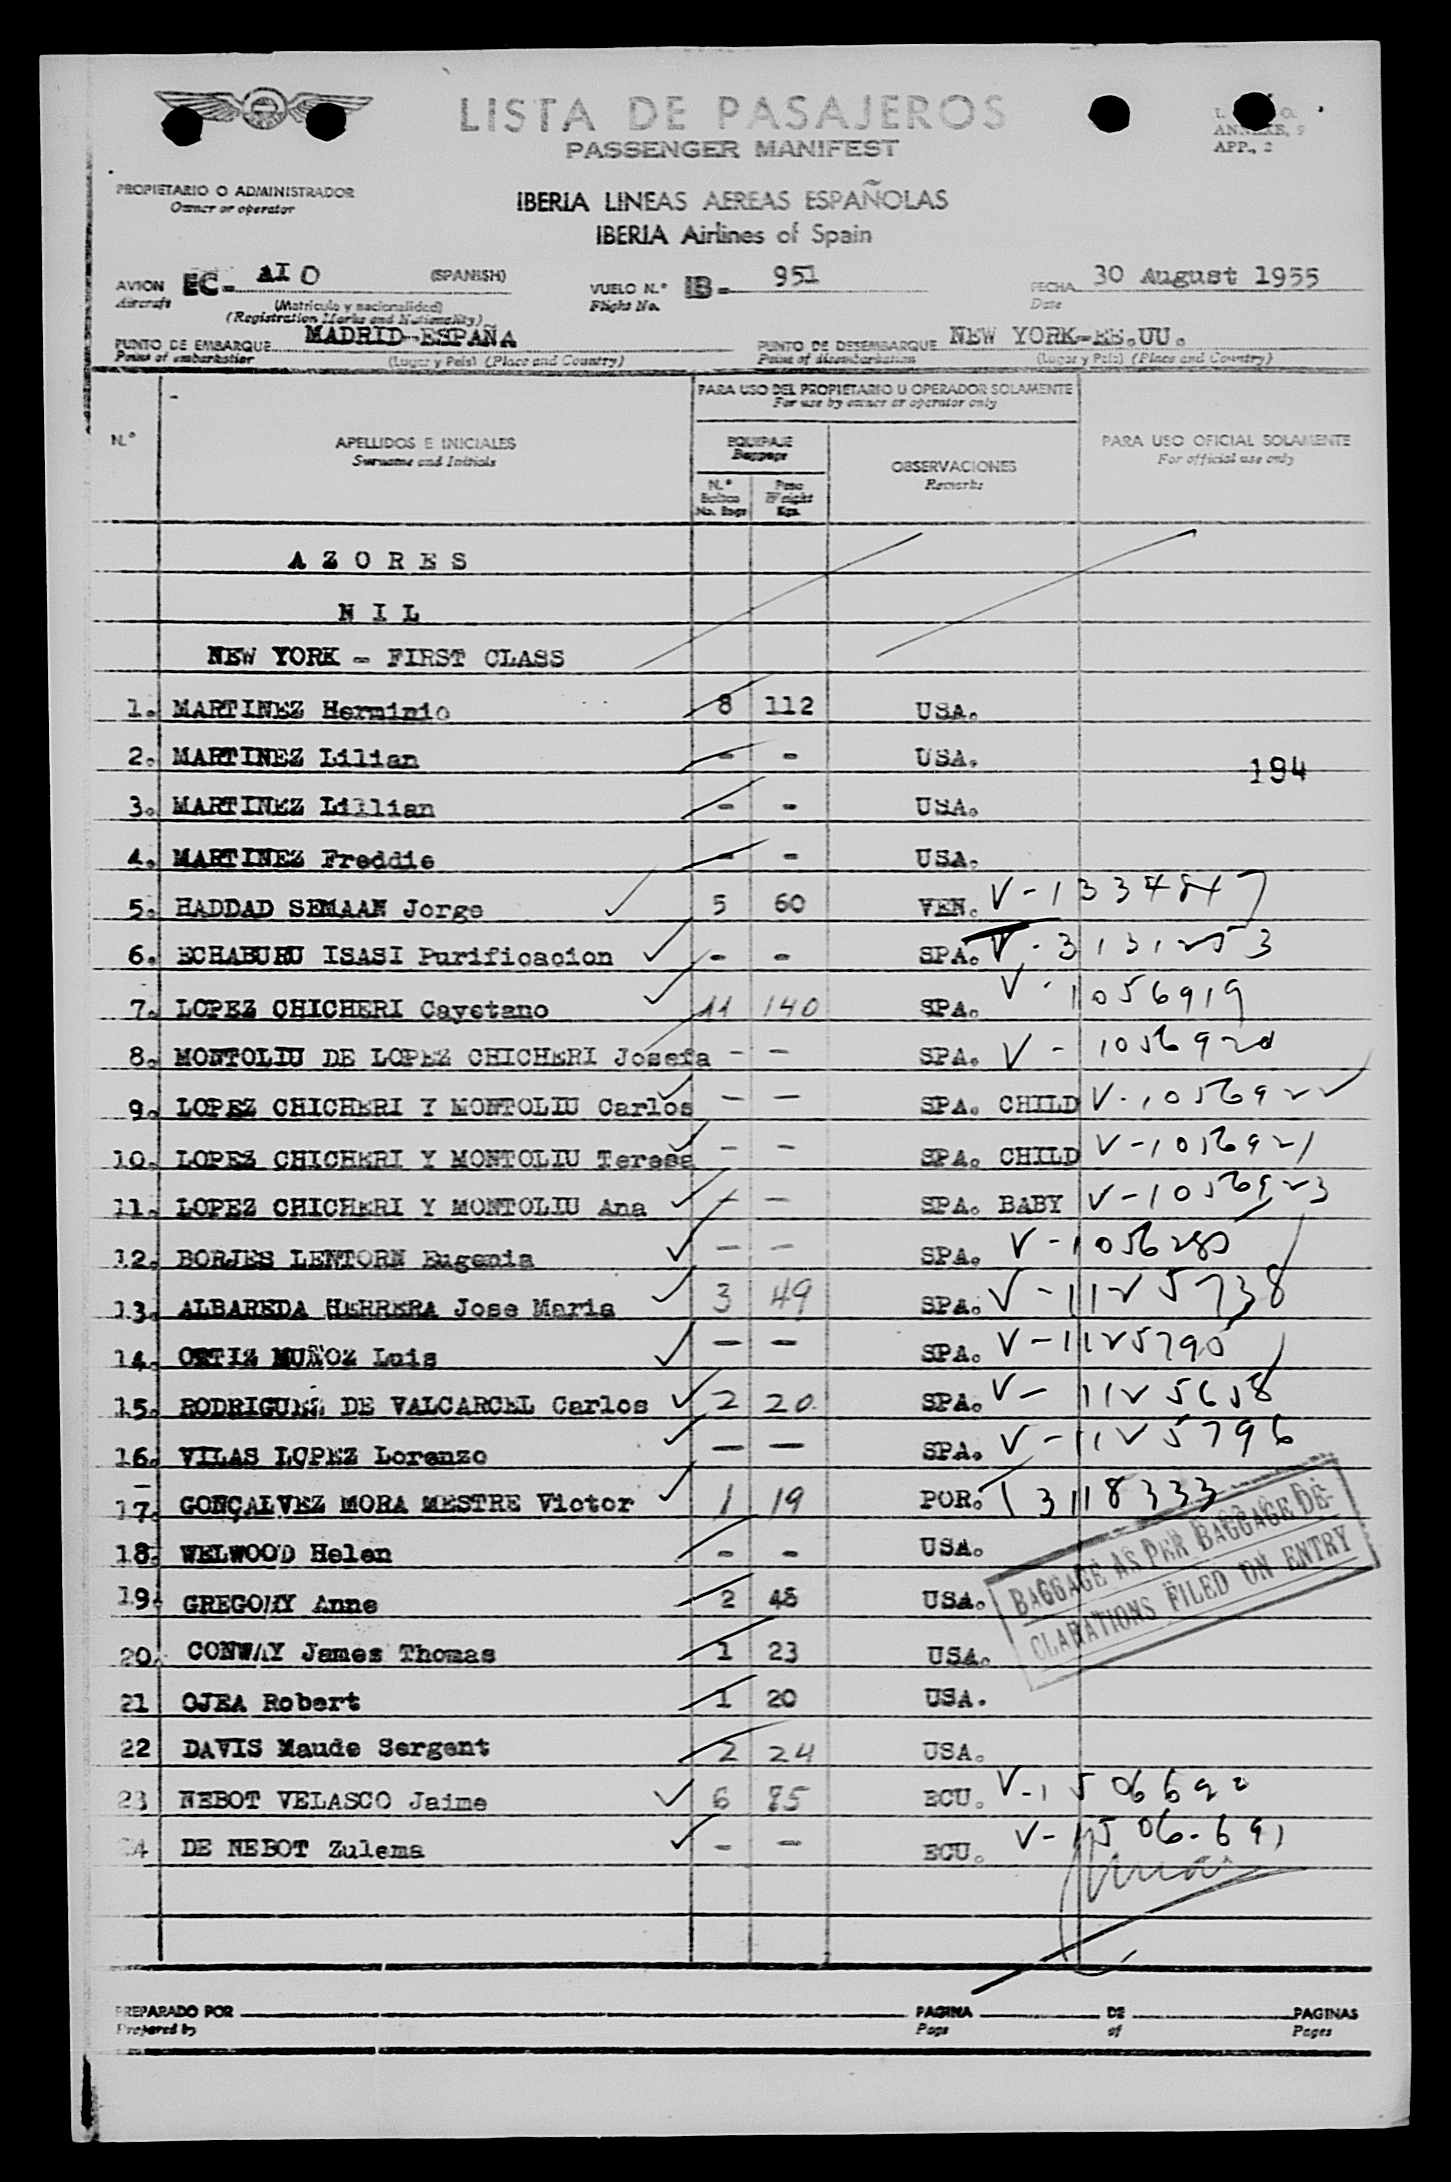 LISTA DE PASAJEROS
PASSENGER MANIFEST
APP., 2
PROPIETARIO O ADMINISTRADOR
Owner or operator
IBERIA LINEAS AEREAS ESPAÑOLAS
IBERIA Airlines of Spain
AVION EC- AIO (SPANISH) VUELO N.º IB- 951 FECHA 30 August 1955
Aircraft (Matricula y nacionalidad) Flight No. Date
(Registration Marks and Nationality)
PUNTO DE EMBARQUE MADRID-ESPAÑA PUNTO DE DESEMBARQUE NEW YORK-EE.UU.
Point of embarkation (Lugar y País) (Place and Country) Point of disembarkation (Lugar y País) (Place and Country)
PARA USO DEL PROPIETARIO U OPERADOR SOLAMENTE
For use by owner or operator only
N.º APELLIDOS E INICIALES EQUIPAJE OBSERVACIONES PARA USO OFICIAL SOLAMENTE
Surname and Initials Baggage Remarks For official use only
N.º Bultos Peso
No. Bags Weight Kgs.
AZORES
NIL
NEW YORK - FIRST CLASS
1. MARTINEZ Herminio 8 112 USA.
2. MARTINEZ Lilian - - USA.
194
3. MARTINEZ Lillian - - USA.
4. MARTINEZ Freddie - - USA.
5. HADDAD SEMAAN Jorge 5 60 VEN. V-1334847
6. ECHABURU ISASI Purificacion - - SPA. V-3131253
7. LOPEZ CHICHERI Cayetano 11 140 SPA. V-1056919
8. MONTOLIU DE LOPEZ CHICHERI Josefa - - SPA. V-1056920
9. LOPEZ CHICHERI Y MONTOLIU Carlos - - SPA. CHILD V-1056922
10. LOPEZ CHICHERI Y MONTOLIU Teresa - - SPA. CHILD V-1056921
11. LOPEZ CHICHERI Y MONTOLIU Ana - - SPA. BABY V-1056923
12. BORJES LENTORN Eugenia - - SPA. V-1056280
13. ALBAREDA HERRERA Jose Maria 3 49 SPA. V-1125738
14. ORTIZ MUÑOZ Luis - - SPA. V-1125795
15. RODRIGUEZ DE VALCARCEL Carlos 2 20 SPA. V-1125658
16. VILAS LOPEZ Lorenzo - - SPA. V-1125796
17. GONÇALVEZ MORA MESTRE Victor 1 19 POR. 13118333
18. WELWOOD Helen - - USA.
BAGGAGE AS PER BAGGAGE DE-
CLARATIONS FILED ON ENTRY
19. GREGORY Anne 2 48 USA.
20. CONWAY James Thomas 1 23 USA.
21 OJEA Robert 1 20 USA.
22 DAVIS Maude Sergent 2 24 USA.
23 NEBOT VELASCO Jaime 6 85 ECU. V-1506690
24 DE NEBOT Zulema - - ECU. V-1506-691
PREPARADO POR PAGINA DE PAGINAS
Prepared by Page of Pages